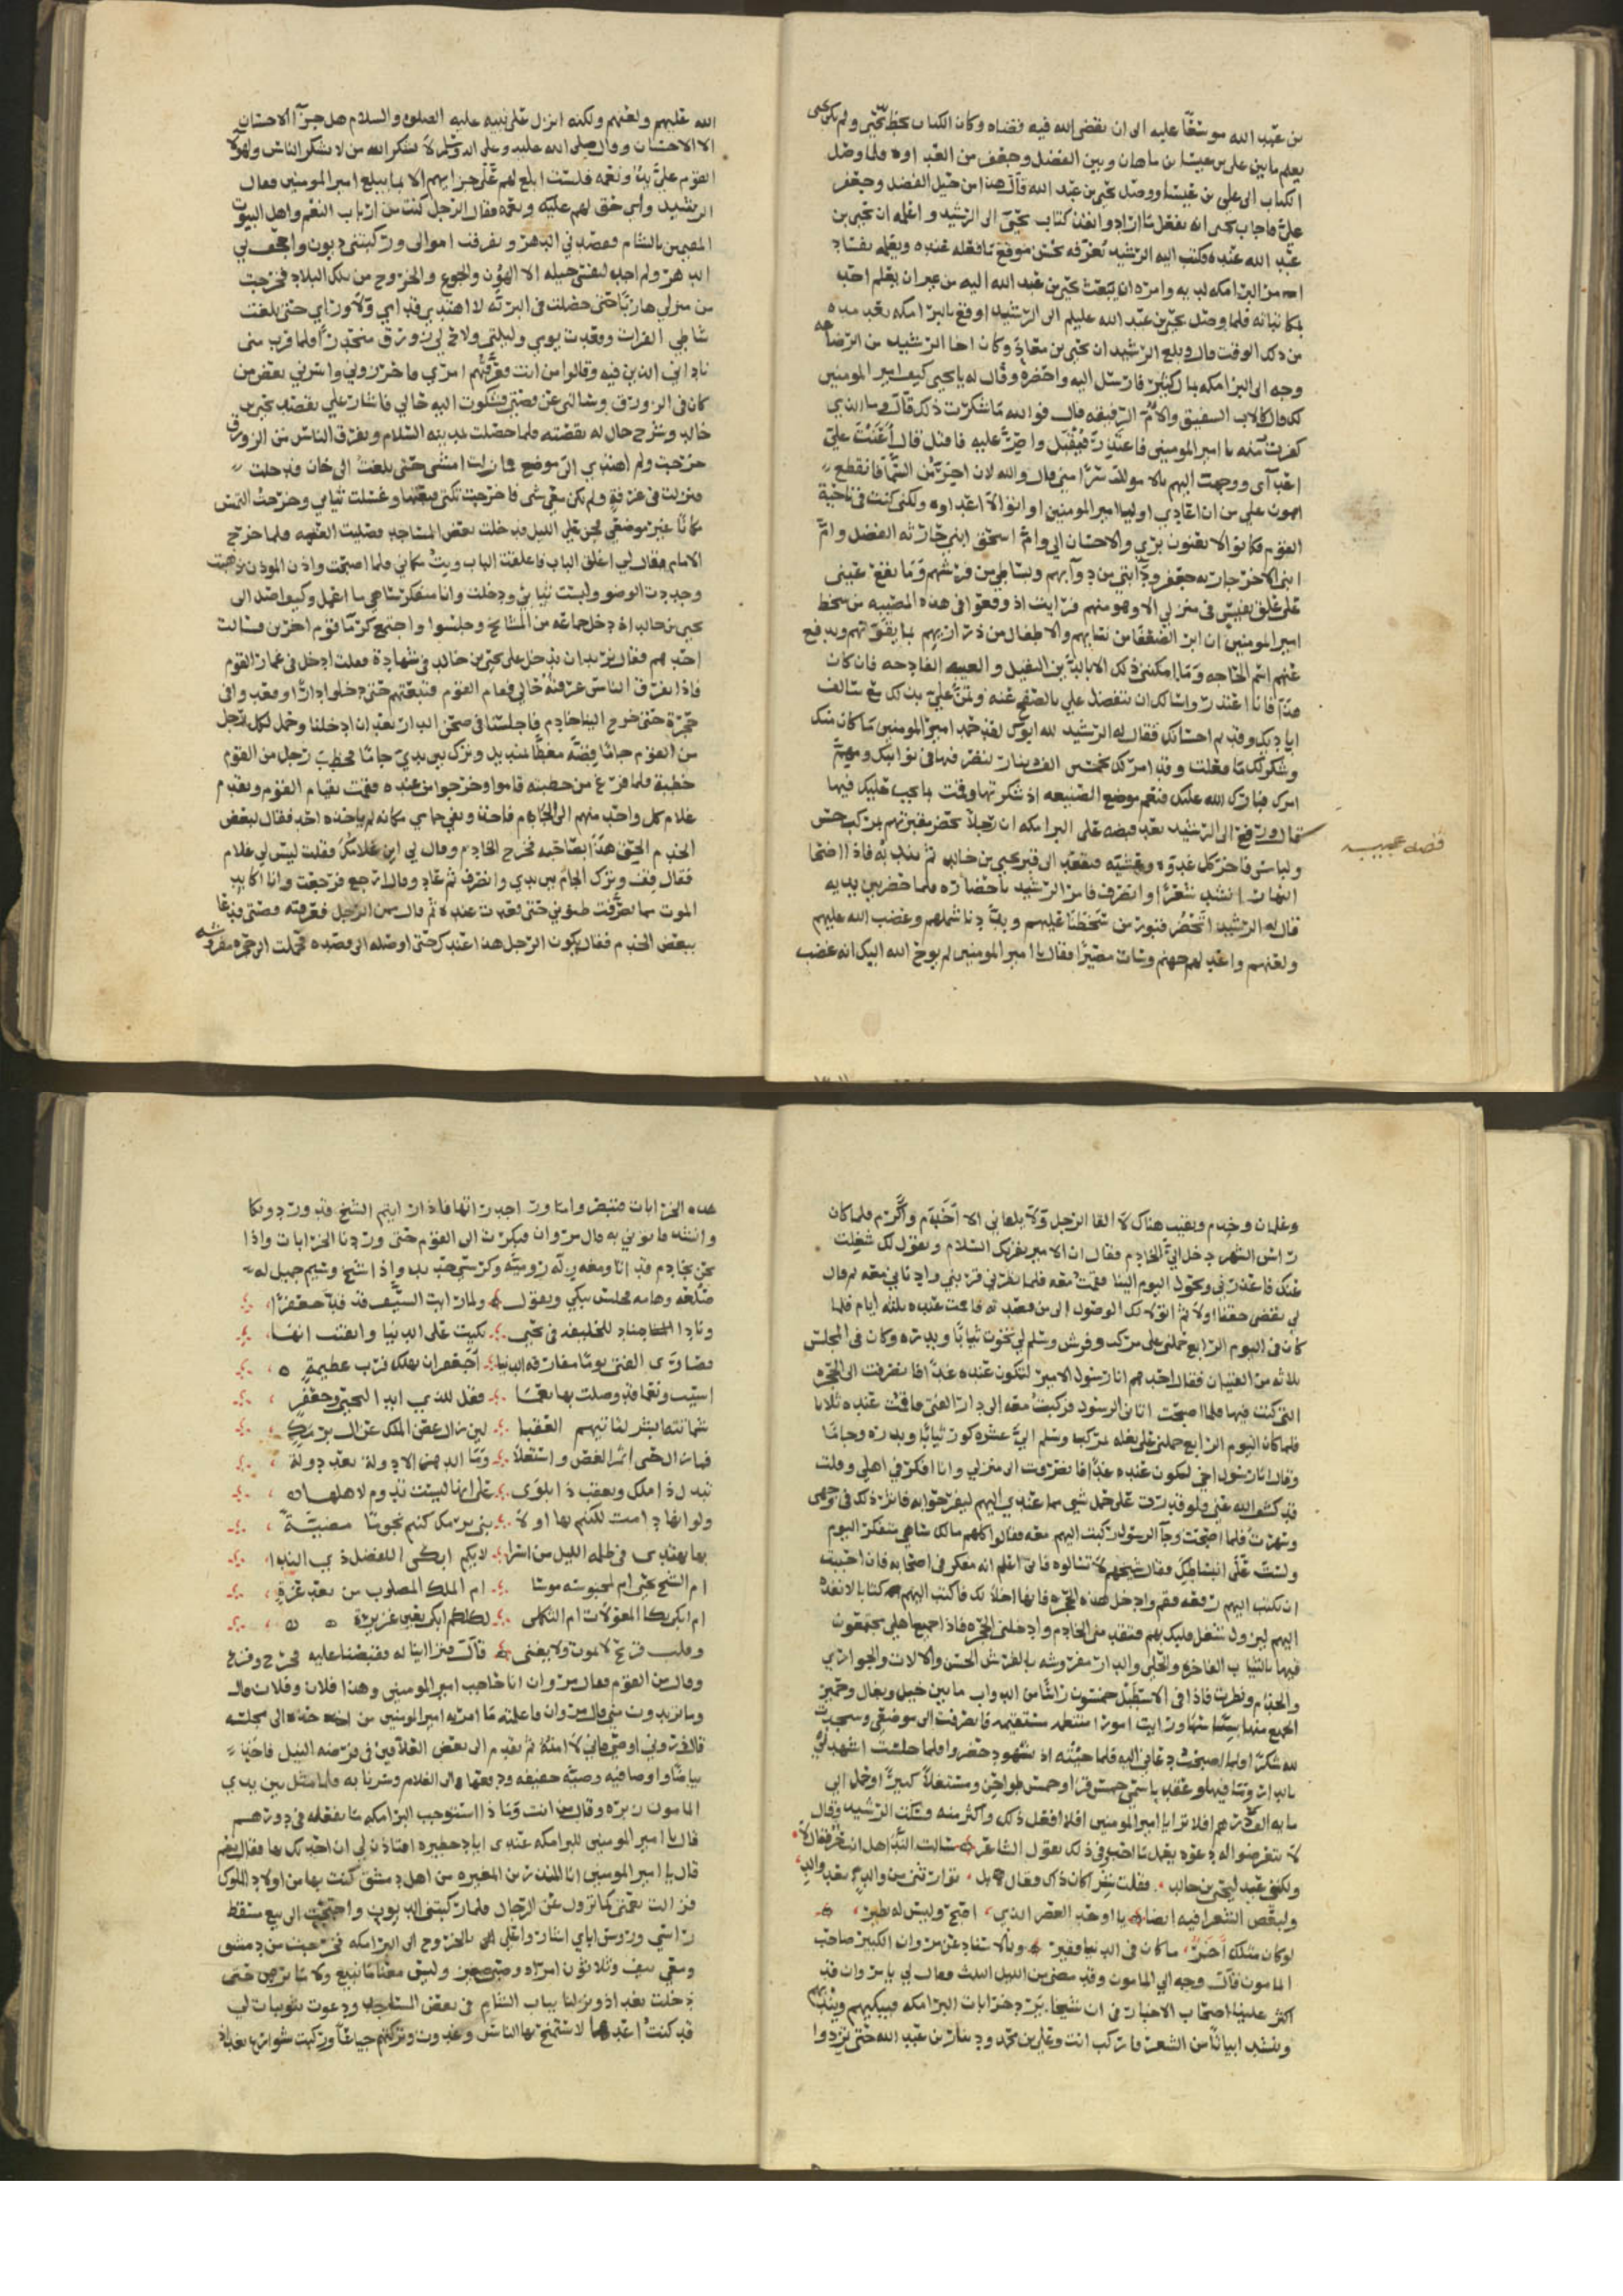 من عبد الله موسعا عليه الى ان يقضى الله فيه قضاه وكان الكتاب بخط يحيى ولم يكن يحيى
يعلم ما بين على بن عيسا بن ماهان وبين الفضل وجعفر من العداوه فلما وصل
الكتاب الى على بن عيسا ووصل يحيى بن عبد الله قال هذا من حيل الفضل وجعفر
على فاجاب يحيى انه يفعل ما اراد وانفذ كتاب يحيى الى الرشيد واعلمه ان يحيى بن
عبد الله عنده فكتب اليه الرشيد يعرفه حسن موقع ما فعله عنده ويعلمه فساد
امر البرامكه لديه وامره ان يبعث يحيى بن عبد الله اليه من غير ان يعلم احد
بمكاتباته فلما وصل يحيى بن عبد الله الى الرشيد اوقع بالبرامكه بعد مده
من ذلك الوقت قال وبلغ الرشيد ان يحيى بن معاذ وكان اخا الرشيد من الرضاعه
وجه الى البرامكه بمال كثير فارسل اليه واحضره وقال له يا يحيى كيف امير المومنين
لك قال كالاب الشفيق والام الرفيقه قال فوالله ما شكرت ذلك قال وما الذي
كفرت منه يا امير المومنين فاعتذر فيقبل واصر عليه فاقتل قال اعنت على
اعدآى ووجهت اليهم بالاموال سرا منى قال والله لان اخر من السما فانقطع
اهون على من ان اعادي اوليا امير المومنين او اوالى اعداوه ولكنى كنت فى ناحية
القوم فكانوا لا يغنون بري والاحسان الي وام اسحق ابنى جاريه الفضل وام
ابنى الاخر جاريه جعفر ودآبتى من دوآبهم وبساطي من فرشهم وما يقع عينى
على علق نفيس فى منزلي الا وهو منهم فرايت اذ وقعوا فى هذه المصيبه من سخط
امير المومنين ان ابر الضعفا من نسايهم والاطفال من ذراريهم بما يقوتهم ويدفع
عنهم اسم الحاجه وما امكننى ذلك الا بالدين الثقيل والعيبه الفادحه فان كان
هذا فانا اعتذر واسالك ان تتفضل علي بالصفح عنه وتمن علي بذلك مع سالف
اياديك وقديم احسانك فقال له الرشيد لله ابوك لقد حمد امير المومنين ما كان منك
وشكر لك ما فعلت وقد امر لك بخمس الف دينار تنظر فيها فى نوائبك ومهم
امرك فبارك الله عليك فنعم موضع الصنيعه اذ شكرتها وقمت بما يجب عليك فيها
قال ورفع الى الرشيد بعد قبضه على البرامكه ان رجلا يحضر مقبرتهم بمركب حسن
قصه عجيبه
ولباس فاخر كل غدوه وعشيه فيقعد الى قبر يحيى بن خالد ثم يندبه فاذا اضحا
النهار انشد شعرا وانصرف فامر الرشيد باحضاره فلما حضر بين يديه
قال له الرشيد اتحضر قبور من سخطنا عليهم وبددنا شملهم وغضب الله عليهم
ولعنهم واعد لهم جهنم وسات مصيرا فقال يا امير المومنين لم يوح الله اليك انه غضب
الله عليهم ولعنهم ولكنه انزل على نبيه عليه الصلوه والسلام هل جزآ الاحسان
الا الاحسان وقال صلى الله عليه وعلى اله وسلم لا يشكر الله من لا يشكر الناس ولهولا
القوم على يد ونعمه فلست ابلغ لهم على جزايهم الا بما يبلغ امير المومنين فقال
الرشيد واي حق لهم عليك ونعمه فقال الرجل كنت من ارباب النعم واهل البيوت
المقيمين بالشام فعضني الدهر وتفرقت اموالى وركبتنى ديون واجحف بي
الدهر ولم اجد لنفسى حيله الا الهون والجوع والخروج من تلك البلاد فخرجت
من منزلي هاربا حتى حصلت فى البريه لا اهتدي قدامي ولا وراي حتى بلغت
شاطي الفرات وقعدت يومي وليلتى ولاح لي زورق منحدرا فلما قرب منى
ناداني الذين فيه وقالوا من انت فعرفتهم امري فاخذوني واسترني بعض من
كان فى الزورق وسالنى عن قصتى فشكوت اليه حالي فاشار علي بقصد يحيى بن
خالد وشرح حال له بقصته فلما حصلت بمدينه السلام وتفرق الناس من الزورق
خرجت ولم اهتدي الى موضع فما زلت امشى حتى بلغت الى خان قد خلت
فنزلت فى غرفة ولم يكن معي شى فاخرجت تكتى فبعتها وغسلت ثيابي وخرجت التمس
مكانا غير موضعي فجن على الليل فدخلت بعض المساجد فصليت العتمه فلما خرج
الامام فقال لي اغلق الباب فاغلقت الباب وبت مكاني فلما اصبحت واذن الموذن ذهبت
وجددت الوضو ولبست ثيابي ودخلت وانا متفكر ما اعمل وكيف اصل الى
يحيى بن خالد اذ دخل جماعه من المشايخ وجلسوا واجتمع كرما قوم اخرين فسالت
احدهم فقال نريد ان ندخل على يحيى بن خالد فى شهادة فقلت ادخل فى غمار القوم
فاذا تفرق الناس عرفته حالي فقام القوم فتبعتهم حتى دخلوا دارا وقعد وا فى
حجرة حتى خرج الينا خادم فاجلسنا فى صحن الدار بعد ان ادخلنا وحمل لكل رجل
من القوم جاما فضه مغطا بمنديل وترك بين يدي جاما فخطب رجل من القوم
خطبة فلما فرغ من خطبته قاموا وخرجوا من عنده فقمت بقيام القوم وتقدم
غلام كل واحد منهم الى الجام فاخذه وبقي جامي مكانه لم ياخذه احد فقال لبعض
الخدم الحق هذا بصاحبه فخرج الخادم وقال لي اين غلامك فقلت ليس لي غلام
فقال قف وترك الجام بين يدي وانصرف ثم عاد وقال ارجع فرجعت وانا اكابد
الموت حتى قعدت عنده ثم قال من الرجل فعرفته قصتى فدعا
ببعض الخدم فقال يكون الرجل هذا عندك حتى اوصله الى قصده فحملت الى حجره مفروشه
وغلمان وخدم وبقيت هناك لا القا الرجل ولا يلقاني الا اخدم واكرم فلما كان
راس الشهر دخل الي الخادم فقال ان الامير يقريك السلام ويقول لك شغلت
عنك فاعذرني وتحول اليوم الينا فقمت معه فلما بصرني قربني وادناني معه ثم قال
لي نقضى حقنا اولا ثم انولك الوصول الى من قصدته فاقمت عنده ثلثه ايام فلما
كان فى اليوم الرابع حملنى على مركب وفرش وسلم لي تخوت ثيابا وبدره وكان فى المجلس
ثلاثه من الفتيان فقال احدهم انا رسول الامير لتكون عنده غدا فانصرفت الى الحجره
التى كنت فيها فلما اصبحت اتانى الرسول فركبت معه الى دار الفتى فاقمت عنده ثلاثا
فلما كان اليوم الرابع حملنى على بغله بمركب وسلم اليّ عشره كور ثيابا وبدره وجاما
وقال انا رسول اخى لتكون عنده غدا فانصرفت الى منزلي وانا افكر فى اهلي وقلت
قد كشف الله عنى ولو قدرت على حمل شى مما عندي اليهم ليفرحوا به فاثر ذلك فى وجهى
وسهرت فلما اصبحت وجآ الرسول ركبت اليهم معه فقالوا كلهم مالك ساهي متفكر اليوم
ولست على انبساطك فقال شيخهم لا تسالوه فانى اعلم انه مفكر فى اصحابه فان احببت
ان تكتب اليهم رقعه فقم وادخل هذه الحجره فانها اخلا لك فاكتب اليهم كتابا لا نفذه
اليهم ليزول شغل قلبك بهم فتقدمنى الخادم وادخلنى الحجره فاذا جميع اهلي مجتمعون
فيها بالثياب الفاخره والحلى والدار مفروشه بالفرش الحسن والالات والجواري
والخدام ونظرت فاذا فى الاسطبل خمسون راسا من الدواب ما بين خيل وبغال وحمير
الجميع منها ورايت امورا منتظمه مستقيمه فانصرفت الى موضعي وسجدت
لله شكرا ولما اصبحت دعاني اليه فلما جيته اذ شهود حضروا فلما جلست اشهد لي
بالدار وما فيها وعقد باسمى خمس قرا وخمس طواحن ومستغلا كبيرا اوخل الى
ما به الف درهم افلا ترا يا امير المومنين افلا افعل ذلك واكثر منه فسكت الرشيد وقال
لا تتعرضوا له دعوه يفعل ما احب وفى ذلك يقول الشاعر سالت الندا هل انت حر فقال لا
ولكننى عبد ليحيى بن خالد فقلت شرا كان ذاك فقال بل توارثنى من والد بعد والد
ولبعض الشعرا فيه ايضا يا اوحد العصر الذي اضحى وليس له نظير
لو كان مثلك آخر ما كان فى الدنيا فقير وبالاسناد عن مروان الكبير صاحب
المامون قال وجه الي المامون وقد مضى من الليل الثلث فقال لي يا مروان قد
اكثر علينا اصحاب الاخبار فى ان شيخا يرد خرابات البرامكه فيبكيهم ويندبهم
وينشد ابياتا من الشعر فاركب انت وعلي بن محمد ودينار بن عبد الله حتى تردوا
هذه الخرابات فتبصر واما ور اجدرانها فاذا رايتم الشيخ قد ورد وبكا
وانشد فاتوني به قال مروان فبكرت الى القوم حتى وردنا الخرابات واذا
نحن بخادم قد اتا ومعه زليه روميه وكرسي حديد واذا شيخ وسيم جميل له
صلعه وهامه فجلس يبكي ويقول ولما رايت السيف قد قد جعفرا
ونادا مناد للخليفه فى يحيى بكيت على الدنيا وايقنت انما
قصارى الفتى يوما مفارقه الدنيا اجعفر ان تهلك فرب عظيمة
كشفت ونعما قد وصلت بها نعما فقل للذي ابدا ليحيى وجعفر
شماتته ابشر لتاتيهم العقبا لين زال غصن الملك عن ال برمك
فما زال حتى اثمر الغصن واستعلا وما الدهر الا دولة بعد دولة
تبدل ذا ملك وتعقب ذا بلوى على انها ليست تدوم لاهلها
ولو انها دامت لكنتم بها اولا بنى برمك كنتم نجوما مضيئة
بها يهتدى فى ظلمه الليل من اسرا لايكم ابكى اللفضل ذي الندا
ام الشيخ يحيى ام لمحبوسه موسا ام الملك المصلوب من بعد عزة
ام ابكى بكا المعولات ام الثكلى لكلكم ابكى بعين غزيرة
وقلب قريح لا يموت ولا يفنى قال فترآاينا له وقبضنا عليه فجزع وفزع
وقال من القوم فقال مروان انا حاجب امير المومنين وهذا فلان وفلان قال
وما تريدون منى قال مروان فاعلمته ما امر به امير المومنين من اخذه الى مجلسه
قال ذروني اوصى فاني لا آمنه ثم تقدم الى بعض العلافين فى فرضه الفيل فاخذ
بياضا واوصا فيه وصيه خفيفه ودفعها الى الغلام وسرنا به فلما مثل بين يدي
المامون زبره وقال من انت وبماذا استوجب البرامكه ما تفعله فى دورهم
قال يا امير المومنين للبرامكه عندى اياد خطيره افتاذن لي ان احدثك بها فقال نعم
قال يا امير المومنين انا المنذر بن المغيره من اهل دمشق كنت بها من اولاد الملوك
فزالت نعمتى كما تزول عن الرجال فلما ركبتنى الديون واحتجت الى بيع مسقط
راسي وروس اباي اشار واعلي اهلى بالخروج الى البرامكه فخرجت من دمشق
ومعي نيف وثلاثون امراه وصبى صغير وليس معنا ما نبيع ولا ما نرهن حتى
دخلت بغداد ونزلنا بباب الشام فى بعض المساجد ودعوت بثوبيات لي
قد كنت اعددتها لاستمنح بها الناس وغدوت وتركتهم جياعا وركبت شوارع بغداد